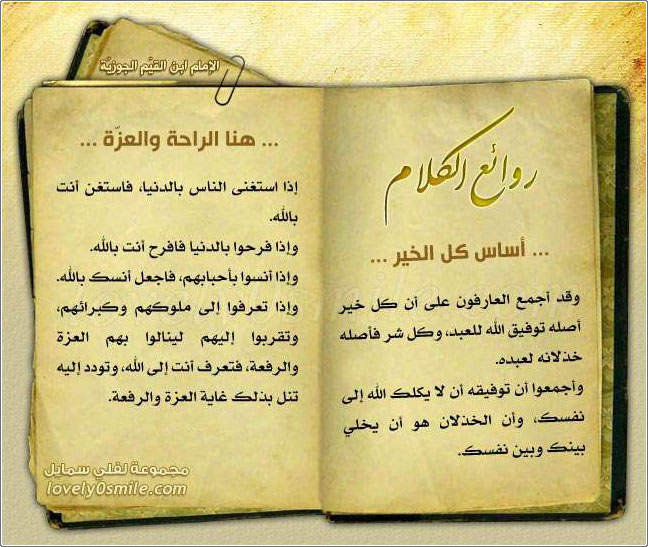 الإمام ابن القيّم الجوزيّة
روائع الكلام
... أساس كل الخير ...
وقد أجمع العارفون على أن كل خير
أصله توفيق الله للعبد، وكل شر فأصله
خذلانه لعبده.
وأجمعوا أن توفيقه أن لا يكلك الله إلى
نفسك، وأن الخذلان هو أن يخلي
بينك وبين نفسك.
... هنا الراحة والعزّة ...
إذا استغنى الناس بالدنيا، فاستغن أنت
بالله.
وإذا فرحوا بالدنيا فافرح أنت بالله.
وإذا أنسوا بأحبابهم، فاجعل أنسك بالله.
وإذا تعرفوا إلى ملوكهم وكبرائهم،
وتقربوا إليهم لينالوا بهم العزة
والرفعة، فتعرف أنت إلى الله، وتودد إليه
تنل بذلك غاية العزة والرفعة.
مجموعة لفلي سمايل
lovely0smile.com